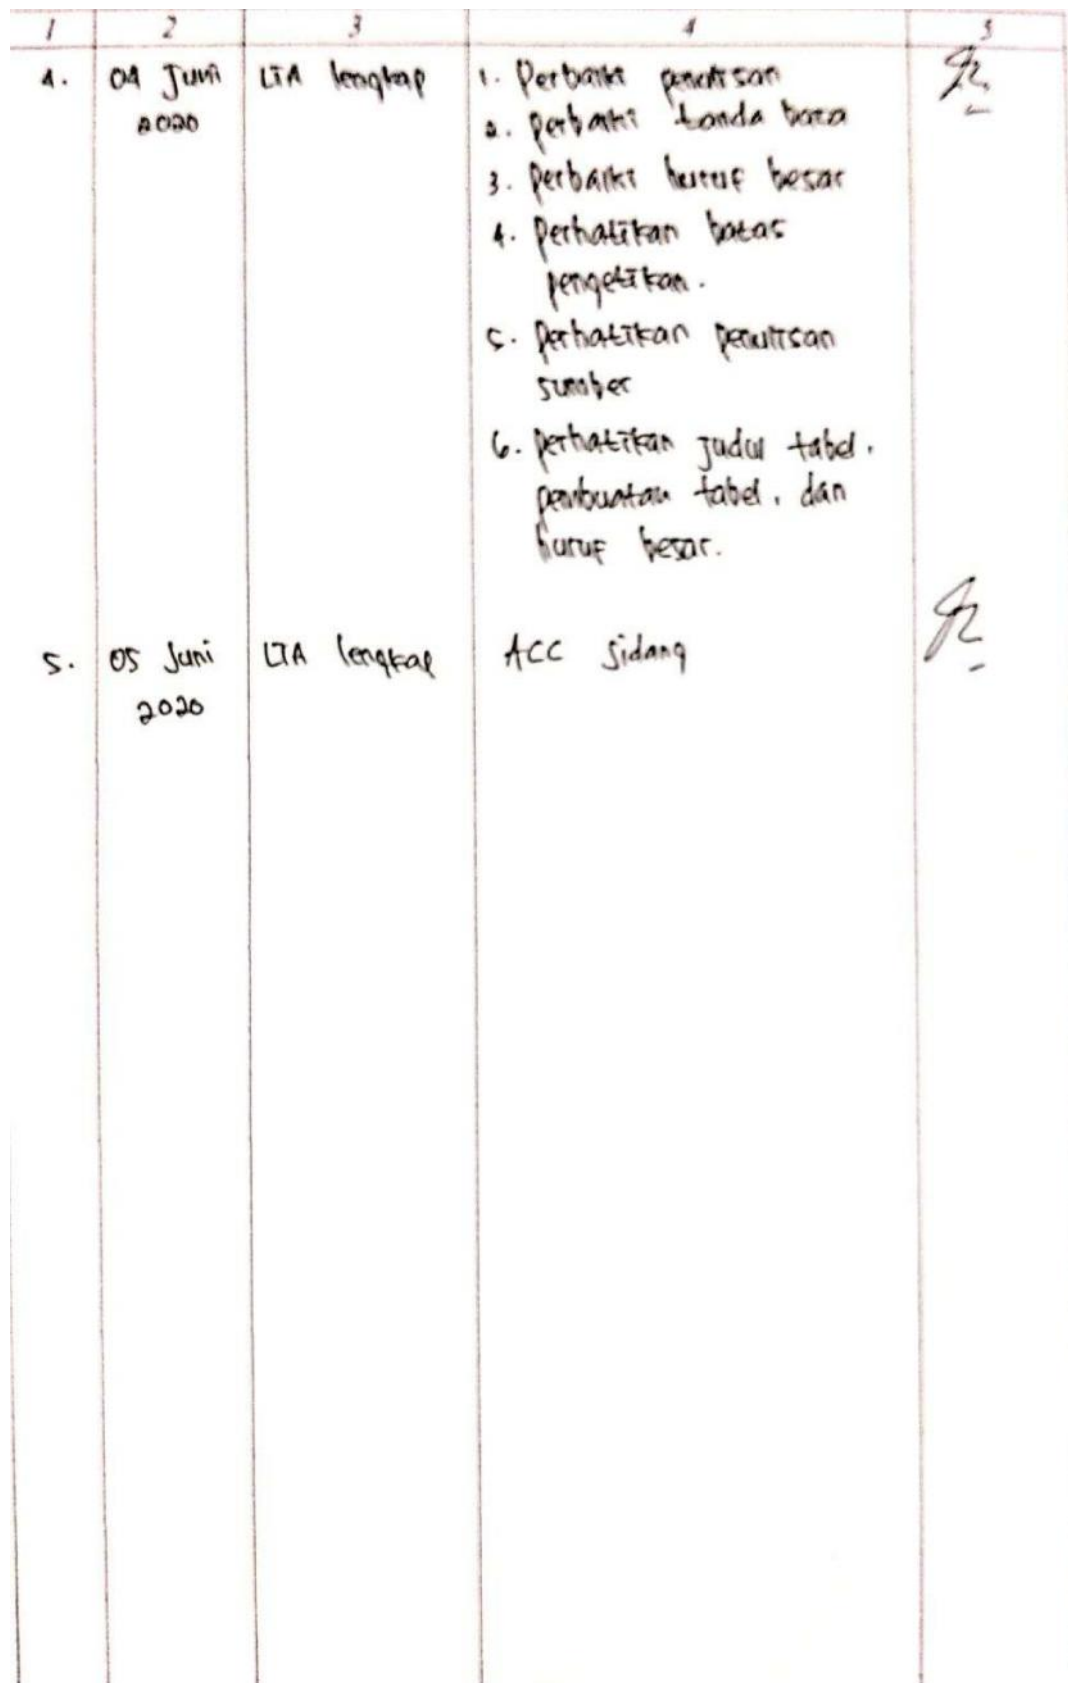 1 2 3 4 5
4. 04 Juni LTA lengkap 1. Perbaiki penulisan
2020 2. perbaiki tanda baca
3. perbaiki huruf besar
4. perhatikan batas
pengetikan.
5. perhatikan penulisan
sumber
6. perhatikan judul tabel,
pembuatan tabel, dan
huruf besar.
5. 05 Juni LTA lengkap ACC sidang
2020